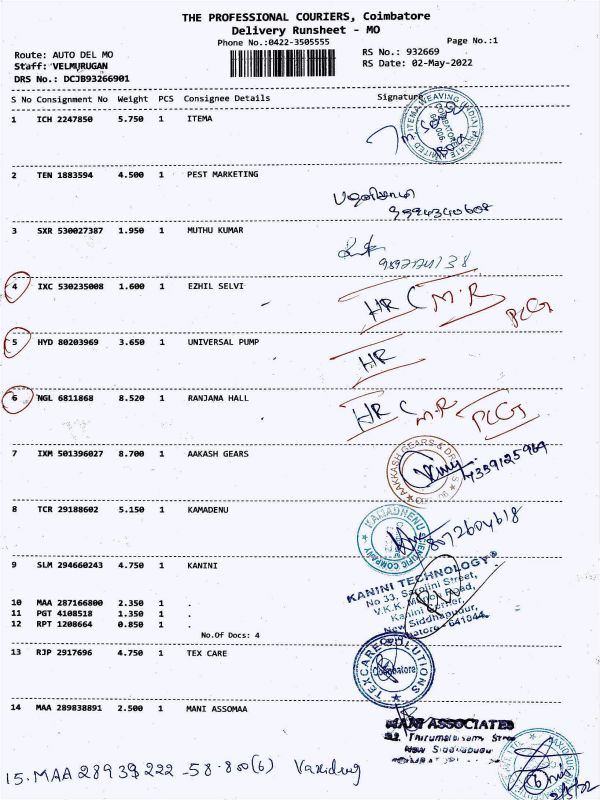 THE PROFESSIONAL COURIERS, Coimbatore
Delivery Runsheet - MO
Phone No.:0422-3505555
Page No.:1
Route: AUTO DEL MO
RS No.: 932669
Staff: VELMURUGAN
RS Date: 02-May-2022
DRS No.: DCJB93266901
S No Consignment No Weight PCS Consignee Details Signature
1 ICH 2247850 5.750 1 ITEMA
2 TEN 1883594 4.500 1 PEST MARKETING
9994340608
3 SXR 530027387 1.950 1 MUTHU KUMAR
4 IXC 530235008 1.600 1 EZHIL SELVI
HR ( M.R
PCG
5 HYD 80203969 3.650 1 UNIVERSAL PUMP
HR
6 NGL 6811868 8.520 1 RANJANA HALL
HR ( M.R PCG
7 IXM 501396027 8.700 1 AAKASH GEARS
AAKKASH GEARS &
7359125969
8 TCR 29188602 5.150 1 KAMADENU
KAMADHENU SCIENTIFIC COMPANY
8072604618
9 SLM 294660243 4.750 1 KANINI
KANINI TECHNOLOGY®
No 33, Sarojini Street,
V.K.K. Menon Road,
Kanini Corner,
New Siddhapudur,
Coimbatore - 641044.
10 MAA 287166800 2.350 1 .
11 PGT 4108518 1.350 1 .
12 RPT 1208664 0.850 1 .
No.Of Docs: 4
13 RJP 2917696 4.750 1 TEX CARE
TEXCARE SOLUTIONS
Coimbatore
14 MAA 289838891 2.500 1 MANI ASSOMAA
MANI ASSOCIATES
New Siddhapudur
15. MAA 28939222 - 58.800(6)
2/5/22